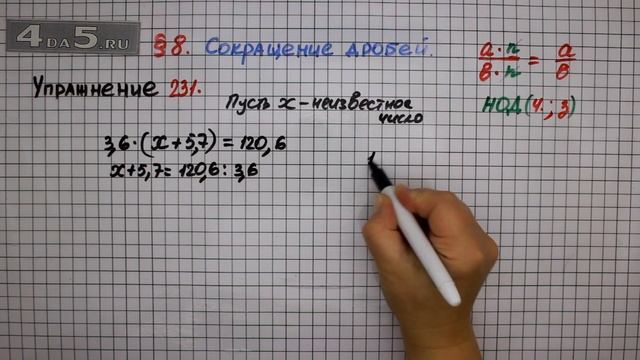 4DA5.RU
§8. Сокращение дробей.
a·n/в·n = a/в
Упражнение 231.
НОД(ч.; з)
Пусть x – неизвестное
число
3,6·(x+5,7) = 120,6
x+5,7 = 120,6 : 3,6
1